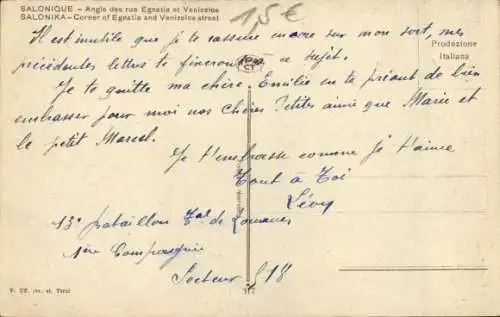 SALONIQUE – Angle des rue Egnatia et Venizelos
SALONIKA – Corner of Egnatia and Venizelos street
1,5 €
Il est inutile que je te rassure encore sur mon sort, mes
précédentes lettres te fixeront à ce sujet.
Produzione
Italiana
Je te quitte ma chère Emilie en te priant de bien
embrasser pour moi nos chères Petites ainsi que Marie et
le petit Marcel.
Je t'embrasse comme je t'aime
Tout à toi
Lévy
13e bataillon Tal de Douanes
1ère Compagnie
Secteur 518
317